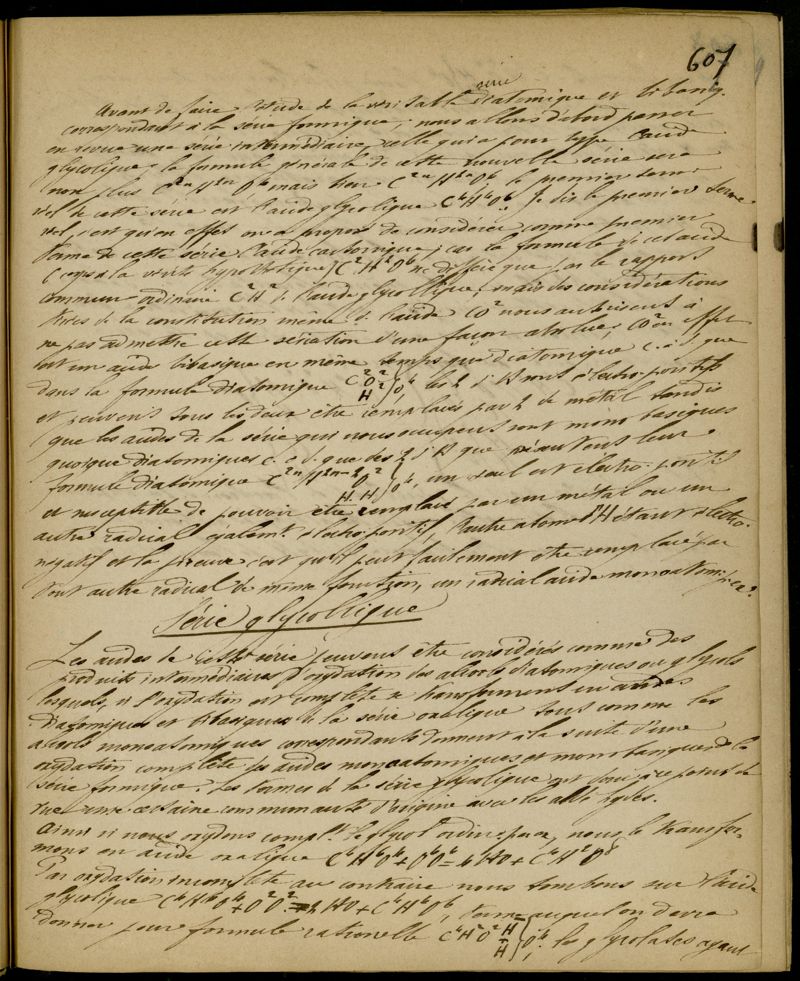 607
série
Avant de faire l'étude de la véritable diatomique et bibasiq.
correspondant à la série formique, nous allons d'abord passer
en revue une série intermédiaire, celle qui a pour type l'acide
glycolique; la formule générale de cette nouvelle série sera
non plus C²ⁿH²ⁿO⁴ mais bien C²ⁿH²ⁿO⁶, le premier terme
réel de cette série est l'acide glycolique C⁴H⁴O⁶. Je dis le premier terme
réel, c'est qu'en effet on a proposé de considérer comme premier
terme de cette série l'acide carbonique, car la formule de cet acide
(corps à la vérité hypothétique) C²H²O⁶ ne diffère que par le rapport
commun ordinaire C²H² de l'acide glycollique, mais des considérations
tirées de la constitution même de l'acide CO² nous autorisent à
ne pas admettre cette sériation d'une façon absolue, CO² en effet
est un acide bibasique en même temps que diatomique c. à. d. que
dans la formule diatomique C²O² H² } O⁴, les 2 d'H sont électro-positifs
et peuvent tous les deux être remplacés par 2 de métal tandis
que les acides de la série qui nous occupent sont monobasiques
quoique diatomiques c. à. d. que des 2 d'H que présentent leur
formule diatomique C²ⁿH²ⁿ⁻²O² H.H } O⁴, un seul est électro-positif
et susceptible de pouvoir être remplacé par un métal ou un
autre radical égalemt électro-positif, l'autre atome d'H étant électro-
négatif et la preuve c'est qu'il peut facilement être remplacé par
tout autre radical de même fonction, un radical acide monoatomique.
Série glycollique
Les acides de cette série peuvent être considérés comme des
produits intermédiaires d'oxydation des alcools diatomiques ou glycols
lesquels, si l'oxydation est complète se transforment en acides
diatomiques et bibasiques de la série oxalique tout comme les
alcools monoatomiques correspondants donnent à la suite d'une
oxydation complète des acides monoatomiques et monobasiques de la
série formique. Les termes de la série glycolique ont donc à ce point de
vue une certaine communauté d'origine avec les
Ainsi si nous oxydons complt le glycol ordinre par ex, nous le transfor-
mons en acide oxalique C⁴H⁶O⁴+O⁸=4HO+C⁴H²O⁸
Par oxydation incomplète au contraire nous tombons sur l'acide
glycolique C⁴H⁶O⁴+O²O²=2HO+C⁴H⁴O⁶, terme auquel on devra
donner pour formule rationelle C⁴H²O² H H } O⁴; les glycolates ayant